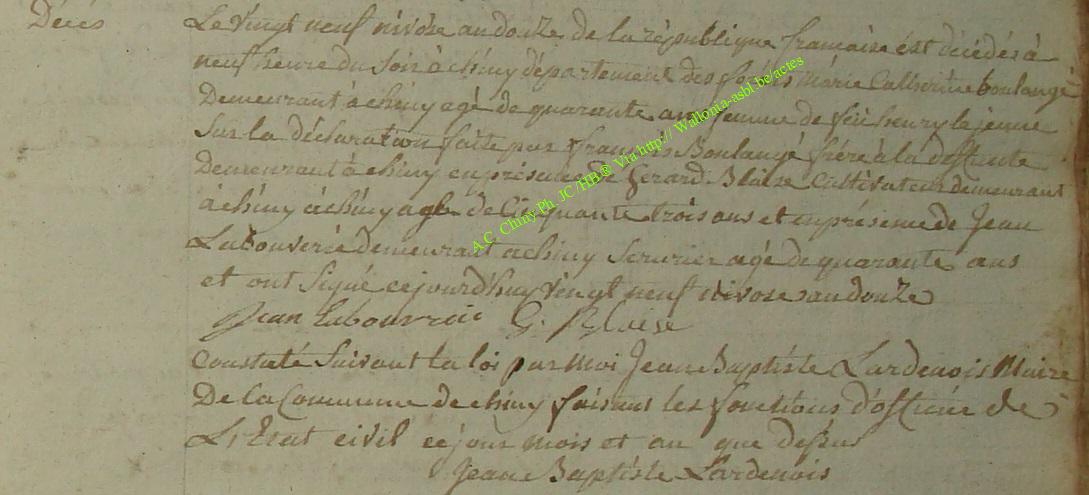 Décés
Le vingt neuf nivôse an douze de la république francaise est décédés à
neuf heure du soir à chiny département des forêts Marie Catherine boulangé
Demeurant à chiny agé de quarante ans femme de feû henry lejeune
Sur la déclaration faite par françois Boulangé frére à la deffunte
Demeurant à chiny en présence de Gerard Blaise Cultivateur demeurant
à chiny à chiny agé de Cinquante trois ans et en présence de Jean
Labouverie demeurant a chiny serurier agé de quarante ans
et ont signé cejourd'huy vingt neuf nivose an douze
Jean Labouverie G. Blaise
Constaté suivant la loi par moi Jean Baptiste Lardenois Maire
De la Commune de chiny faisant les fonctions d'officier de
L'Etat civil ce jour mois et an que dessus
Jean Baptiste Lardenois
A.C. Chiny Ph. JC/HB® Via http// Wallonia-asbl.be/actes